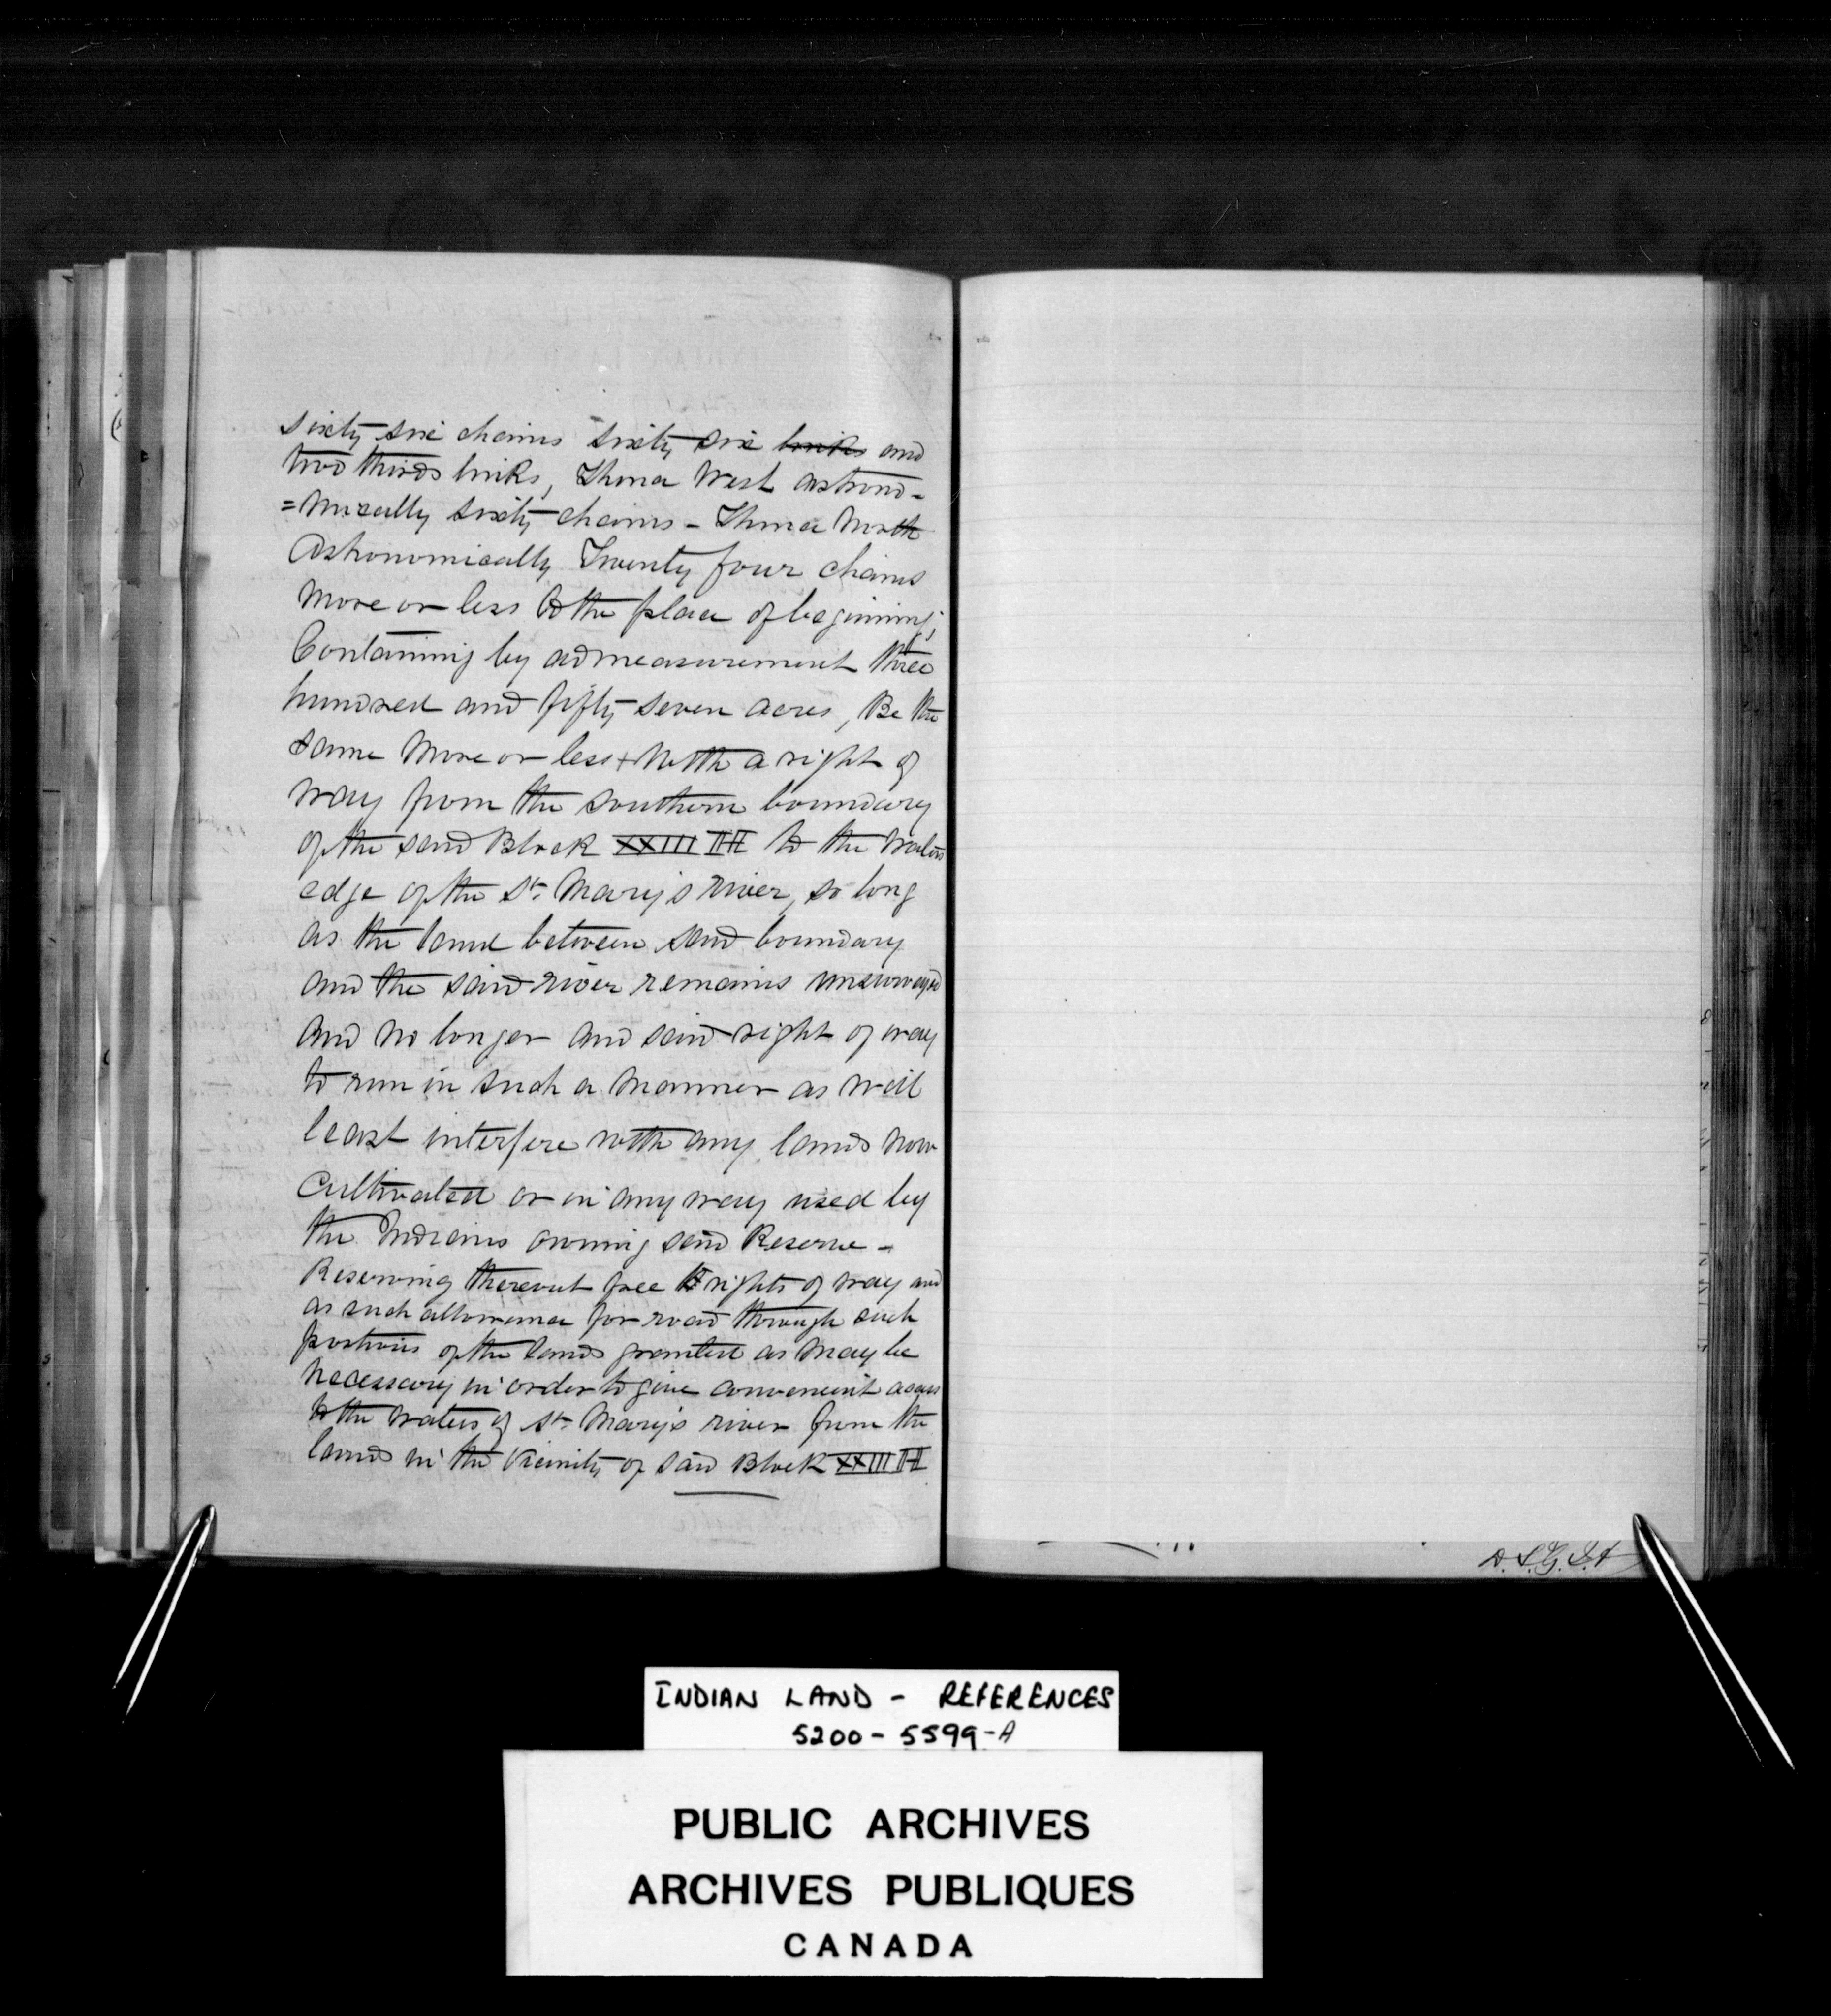 sixty six chains sixty six links and
two thirds links, Thence West astrono-
=mically sixty chains - Thence North
Astronomically Twenty four chains
more or less to the place of beginning;
Containing by admeasurement three
hundred and fifty seven acres, Be the
same more or less + With a right of
way from the southern boundary
of the said Block XXIII to the waters
edge of the St. Mary's river, so long
as the land between said boundary
and the said river remains unsurveyed
and no longer and said right of way
to run in such a manner as will
least interfere with any lands now
cultivated or in any way used by
the Indians owning said Reserve -
Reserving thereout free rights of way and
as such allowance for road through such
portions of the lands granted as may be
necessary in order to give convenient access
to the waters of St. Mary's river from the
lands in the vicinity of said Block XXIII
D.S.G.I.A
INDIAN LAND - REFERENCES
5200 - 5599-A
PUBLIC ARCHIVES
ARCHIVES PUBLIQUES
CANADA